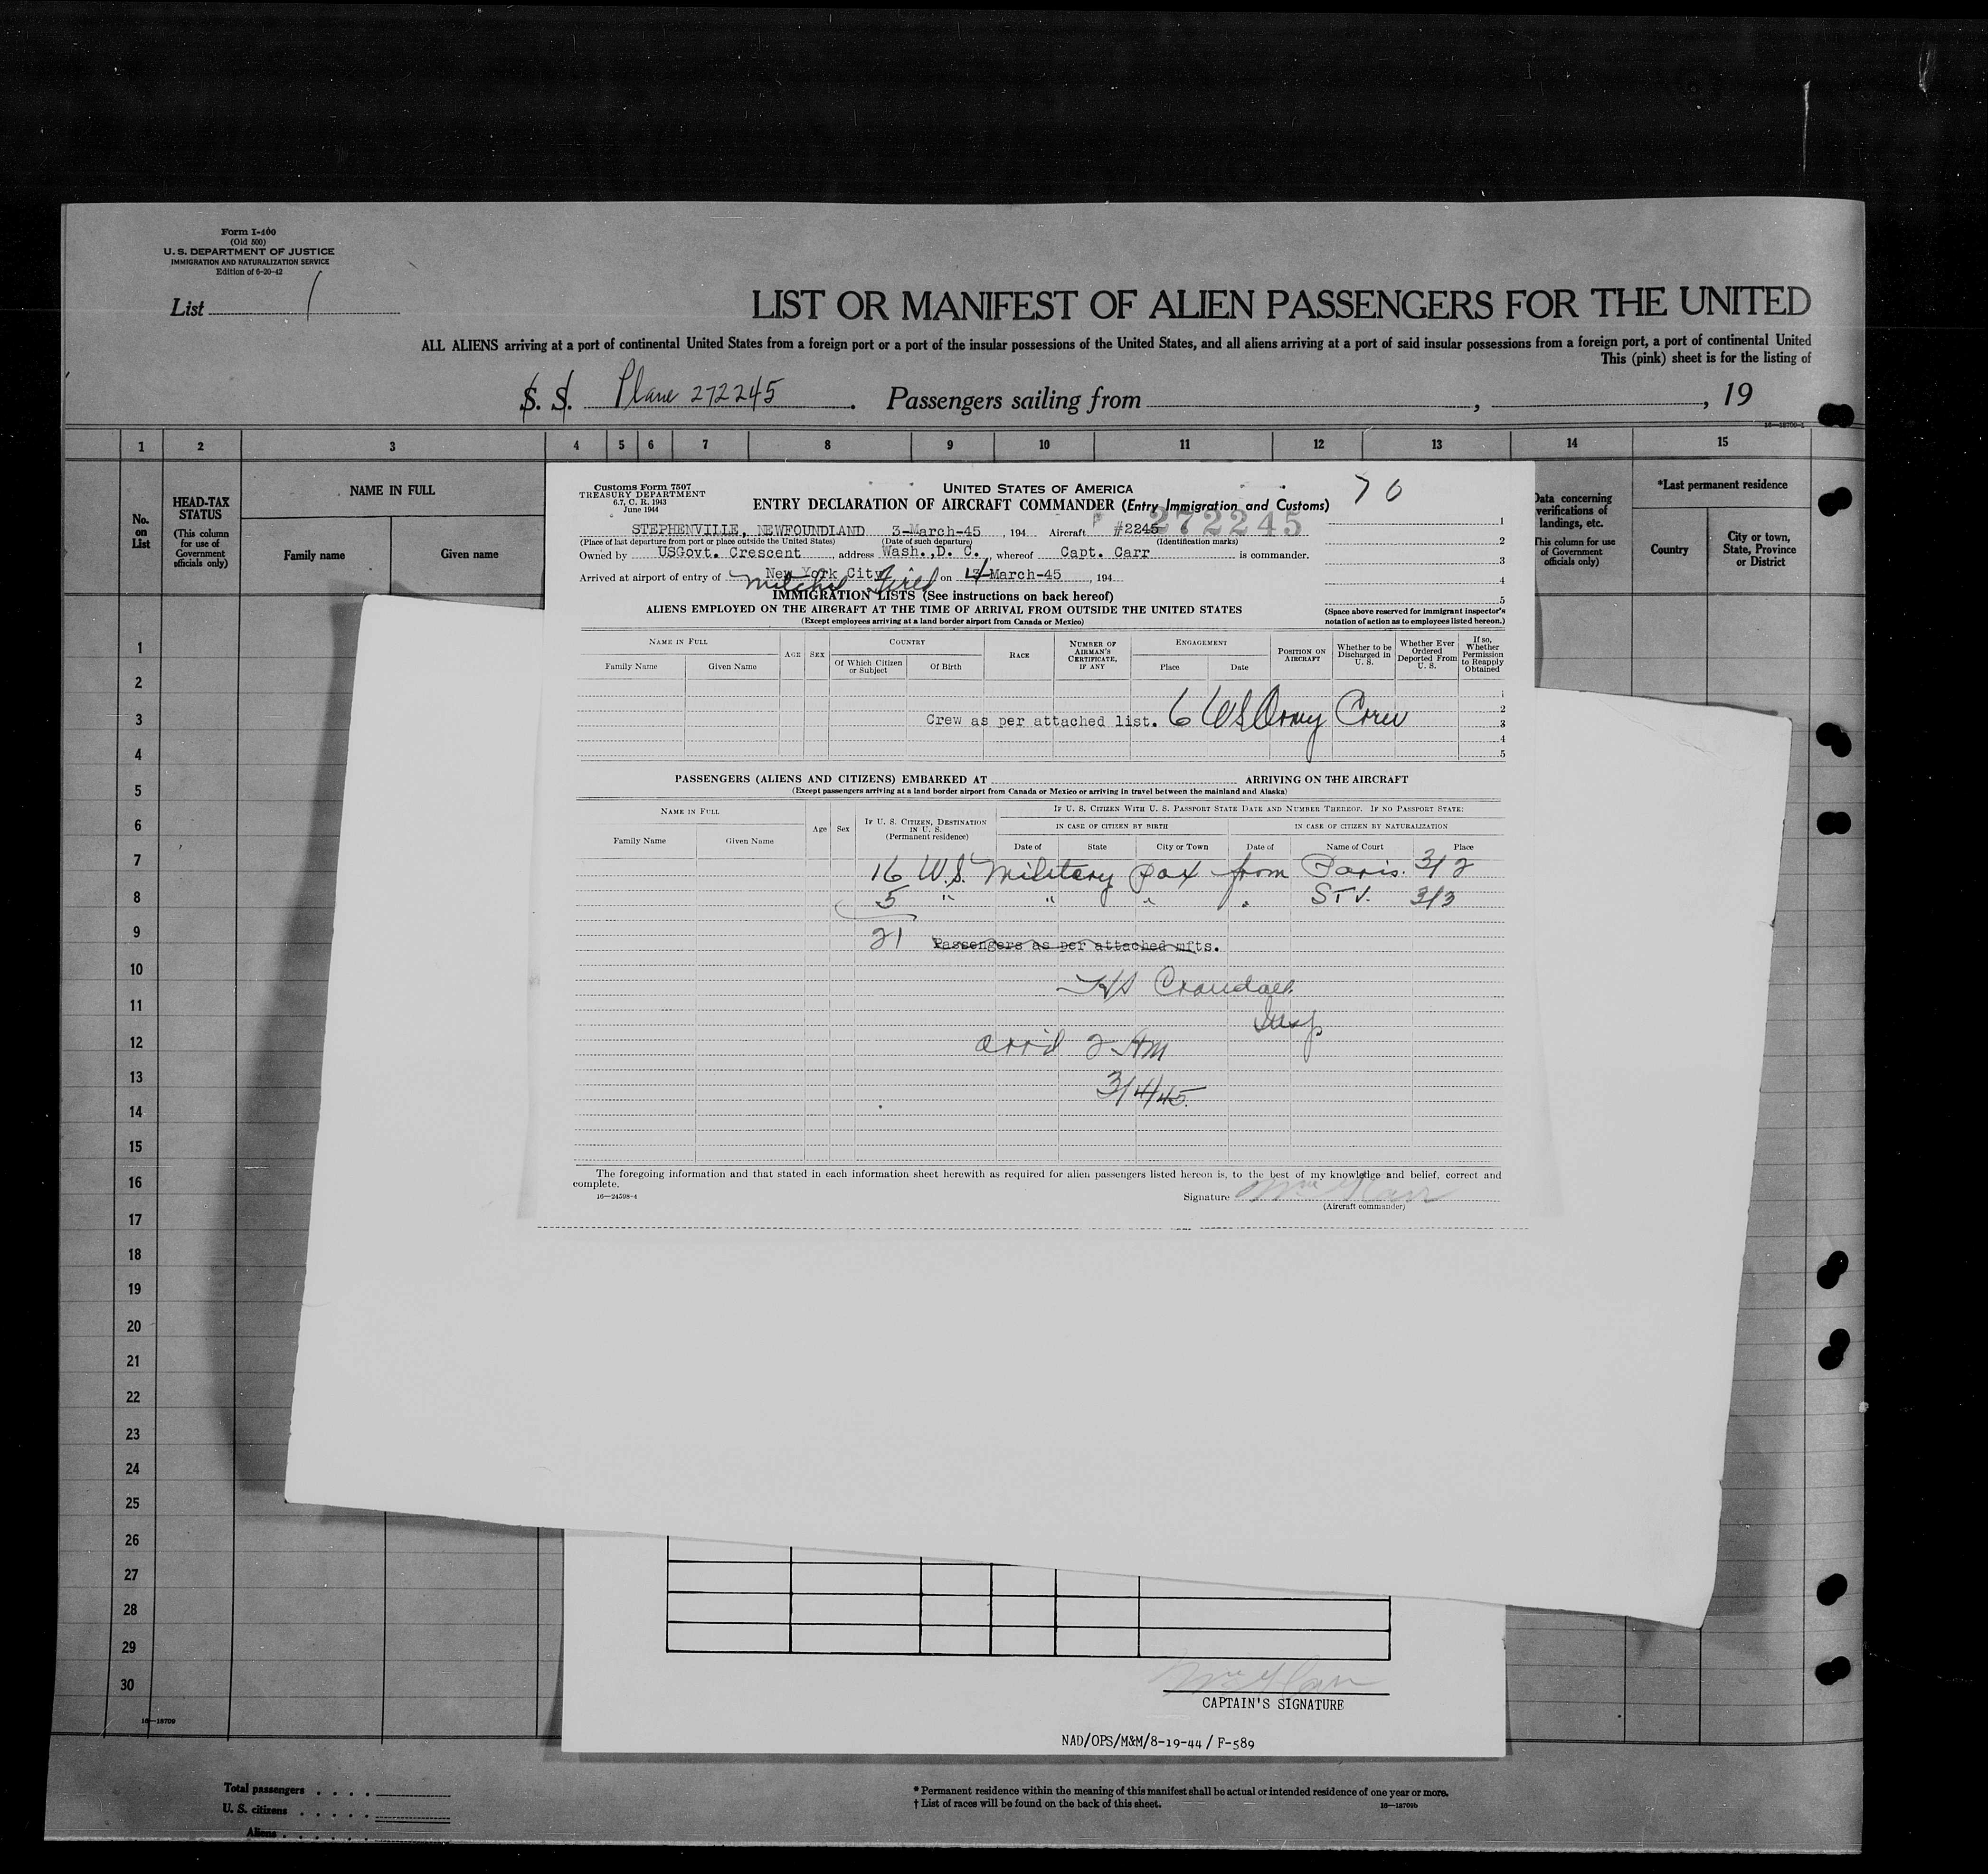 Form I-400
(Old 500)
U. S. DEPARTMENT OF JUSTICE
IMMIGRATION AND NATURALIZATION SERVICE
Edition of 6-20-42
List 1
LIST OR MANIFEST OF ALIEN PASSENGERS FOR THE UNITED
ALL ALIENS arriving at a port of continental United States from a foreign port or a port of the insular possessions of the United States, and all aliens arriving at a port of said insular possessions from a foreign port, a port of continental United
This (pink) sheet is for the listing of
S. S. Plane 272245. Passengers sailing from , , 19
16—18709-1
1 2 3 4 5 6 7 8 9 10 11 12 13 14 15
No. on List
HEAD-TAX STATUS
(This column for use of Government officials only)
NAME IN FULL
Family name Given name
Data concerning verifications of landings, etc.
This column for use of Government officials only)
*Last permanent residence
Country
City or town, State, Province or District
Customs Form 7507
TREASURY DEPARTMENT
6.7, C. R. 1943
June 1944
UNITED STATES OF AMERICA
70
ENTRY DECLARATION OF AIRCRAFT COMMANDER (Entry Immigration and Customs)
272245
STEPHENVILLE, NEWFOUNDLAND 3-March-45, 194 Aircraft #2245
(Place of last departure from port or place outside the United States) (Date of such departure) (Identification marks)
Owned by USGovt. Crescent, address Wash.,D. C., whereof Capt. Carr is commander.
Arrived at airport of entry of New York City on 4 March-45, 194
Mitchel Field
IMMIGRATION LISTS (See instructions on back hereof)
ALIENS EMPLOYED ON THE AIRCRAFT AT THE TIME OF ARRIVAL FROM OUTSIDE THE UNITED STATES
(Except employees arriving at a land border airport from Canada or Mexico)
1
2
3
4
5
(Space above reserved for immigrant inspector's notation of action as to employees listed hereon.)
NAME IN FULL
Family Name Given Name
AGE SEX
COUNTRY
Of Which Citizen or Subject Of Birth
RACE
NUMBER OF AIRMAN'S CERTIFICATE, IF ANY
ENGAGEMENT
Place Date
POSITION ON AIRCRAFT
Whether to be Discharged in U. S.
Whether Ever Ordered Deported From U. S.
If so, Whether Permission to Reapply Obtained
1
2
Crew as per attached list. 6 US Army Crew 3
4
5
PASSENGERS (ALIENS AND CITIZENS) EMBARKED AT ARRIVING ON THE AIRCRAFT
(Except passengers arriving at a land border airport from Canada or Mexico or arriving in travel between the mainland and Alaska)
NAME IN FULL
Family Name Given Name
Age Sex
IF U. S. CITIZEN, DESTINATION IN U. S.
(Permanent residence)
IF U. S. CITIZEN WITH U. S. PASSPORT STATE DATE AND NUMBER THEREOF. IF NO PASSPORT STATE:
IN CASE OF CITIZEN BY BIRTH IN CASE OF CITIZEN BY NATURALIZATION
Date of State City or Town Date of Name of Court Place
16 U.S. Military pax from Paris. 3/2
5 " " " " STV. 3/3
21 Passengers as per attached mfts.
Crandall
Insp
arr'd 2 AM
3/4/45.
The foregoing information and that stated in each information sheet herewith as required for alien passengers listed hereon is, to the best of my knowledge and belief, correct and
complete.
16—24598-4
Signature
(Aircraft commander)
1
2
3
4
5
6
7
8
9
10
11
12
13
14
15
16
17
18
19
20
21
22
23
24
25
26
27
28
29
30
16—18709
CAPTAIN'S SIGNATURE
NAD/OPS/M&M/8-19-44 / F-589
Total passengers
U. S. citizens
Aliens
* Permanent residence within the meaning of this manifest shall be actual or intended residence of one year or more.
† List of races will be found on the back of this sheet.
16—18709b